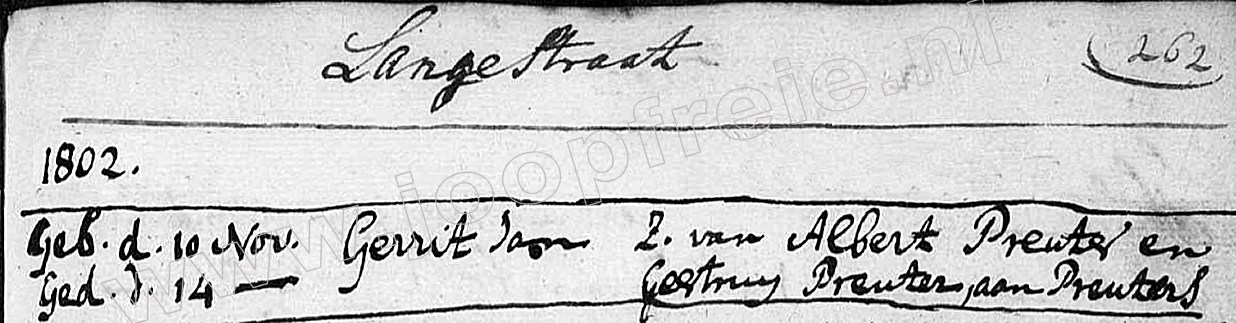 Langestraat 262
1802.
Geb. d. 10 Nov. Gerrit Jan Z. van Albert Preuter en
Ged. d. 14 — Geertruy Preuter, aan Preuters
www.joopfreie.nl